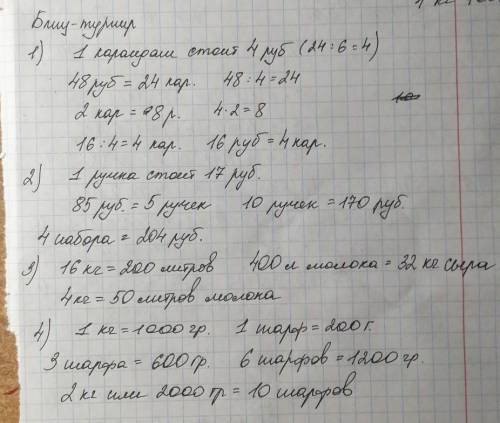 1 кг
Блиц-турнир
1) 1 карандаш стоит 4 руб (24:6=4)
48 руб = 24 кар. 48:4=24
2 кар = 8 р. 4·2=8
16:4=4 кар. 16 руб = 4 кар.
2) 1 ручка стоит 17 руб.
85 руб. = 5 ручек 10 ручек = 170 руб.
4 набора = 204 руб.
3) 16 кг = 200 литров 400 л молока = 32 кг сыра
4 кг = 50 литров молока
4) 1 кг = 1000 гр. 1 шарф = 200 г.
3 шарфа = 600 гр. 6 шарфов = 1200 гр.
2 кг или 2000 гр = 10 шарфов